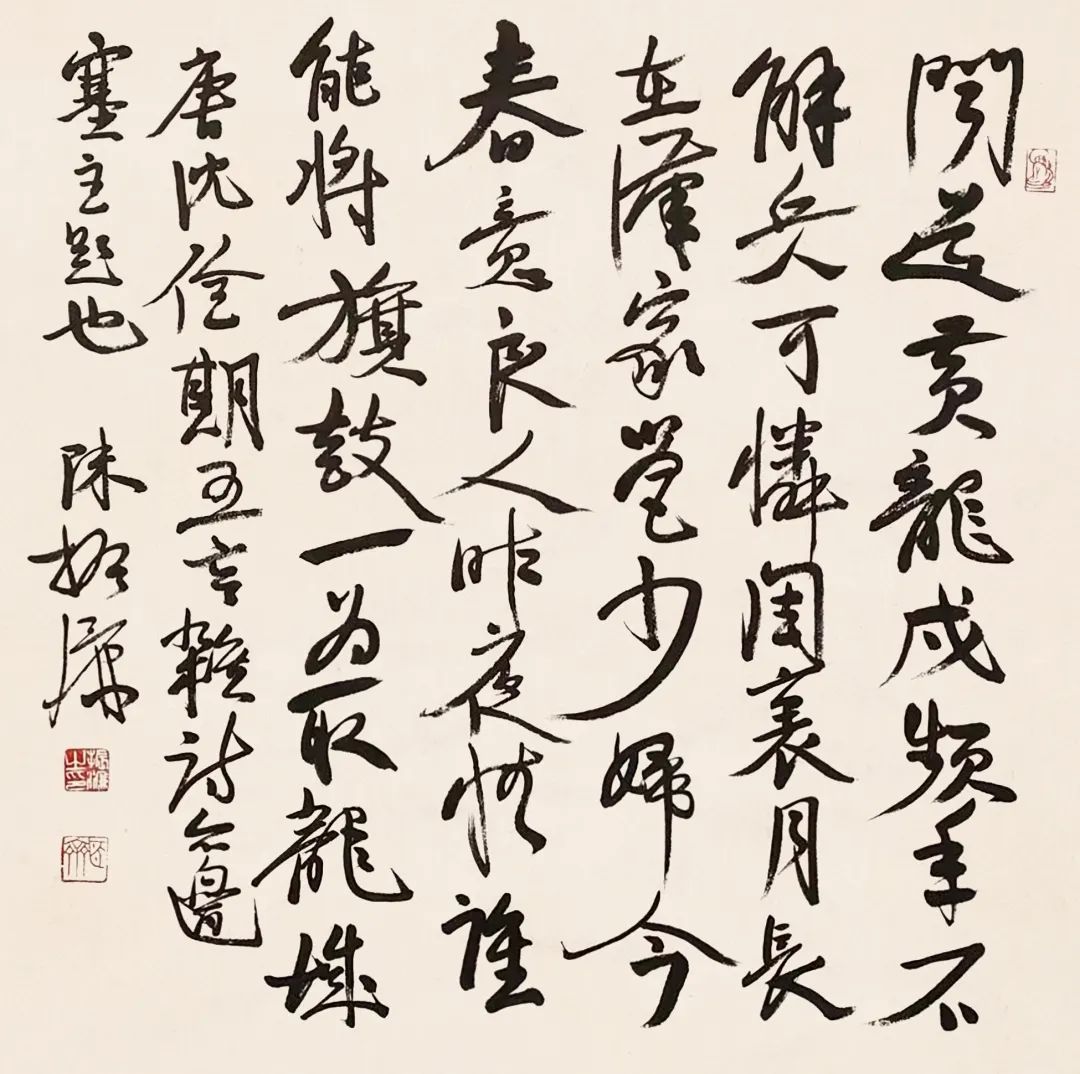 聞道黃龍戍頻年不
解兵可憐閨裏月長
在漢家營少婦今
春意良人昨夜情誰
能將旗鼓一為取龍城
唐沈佺期五言雜詩邊
塞主題也 陳振濂